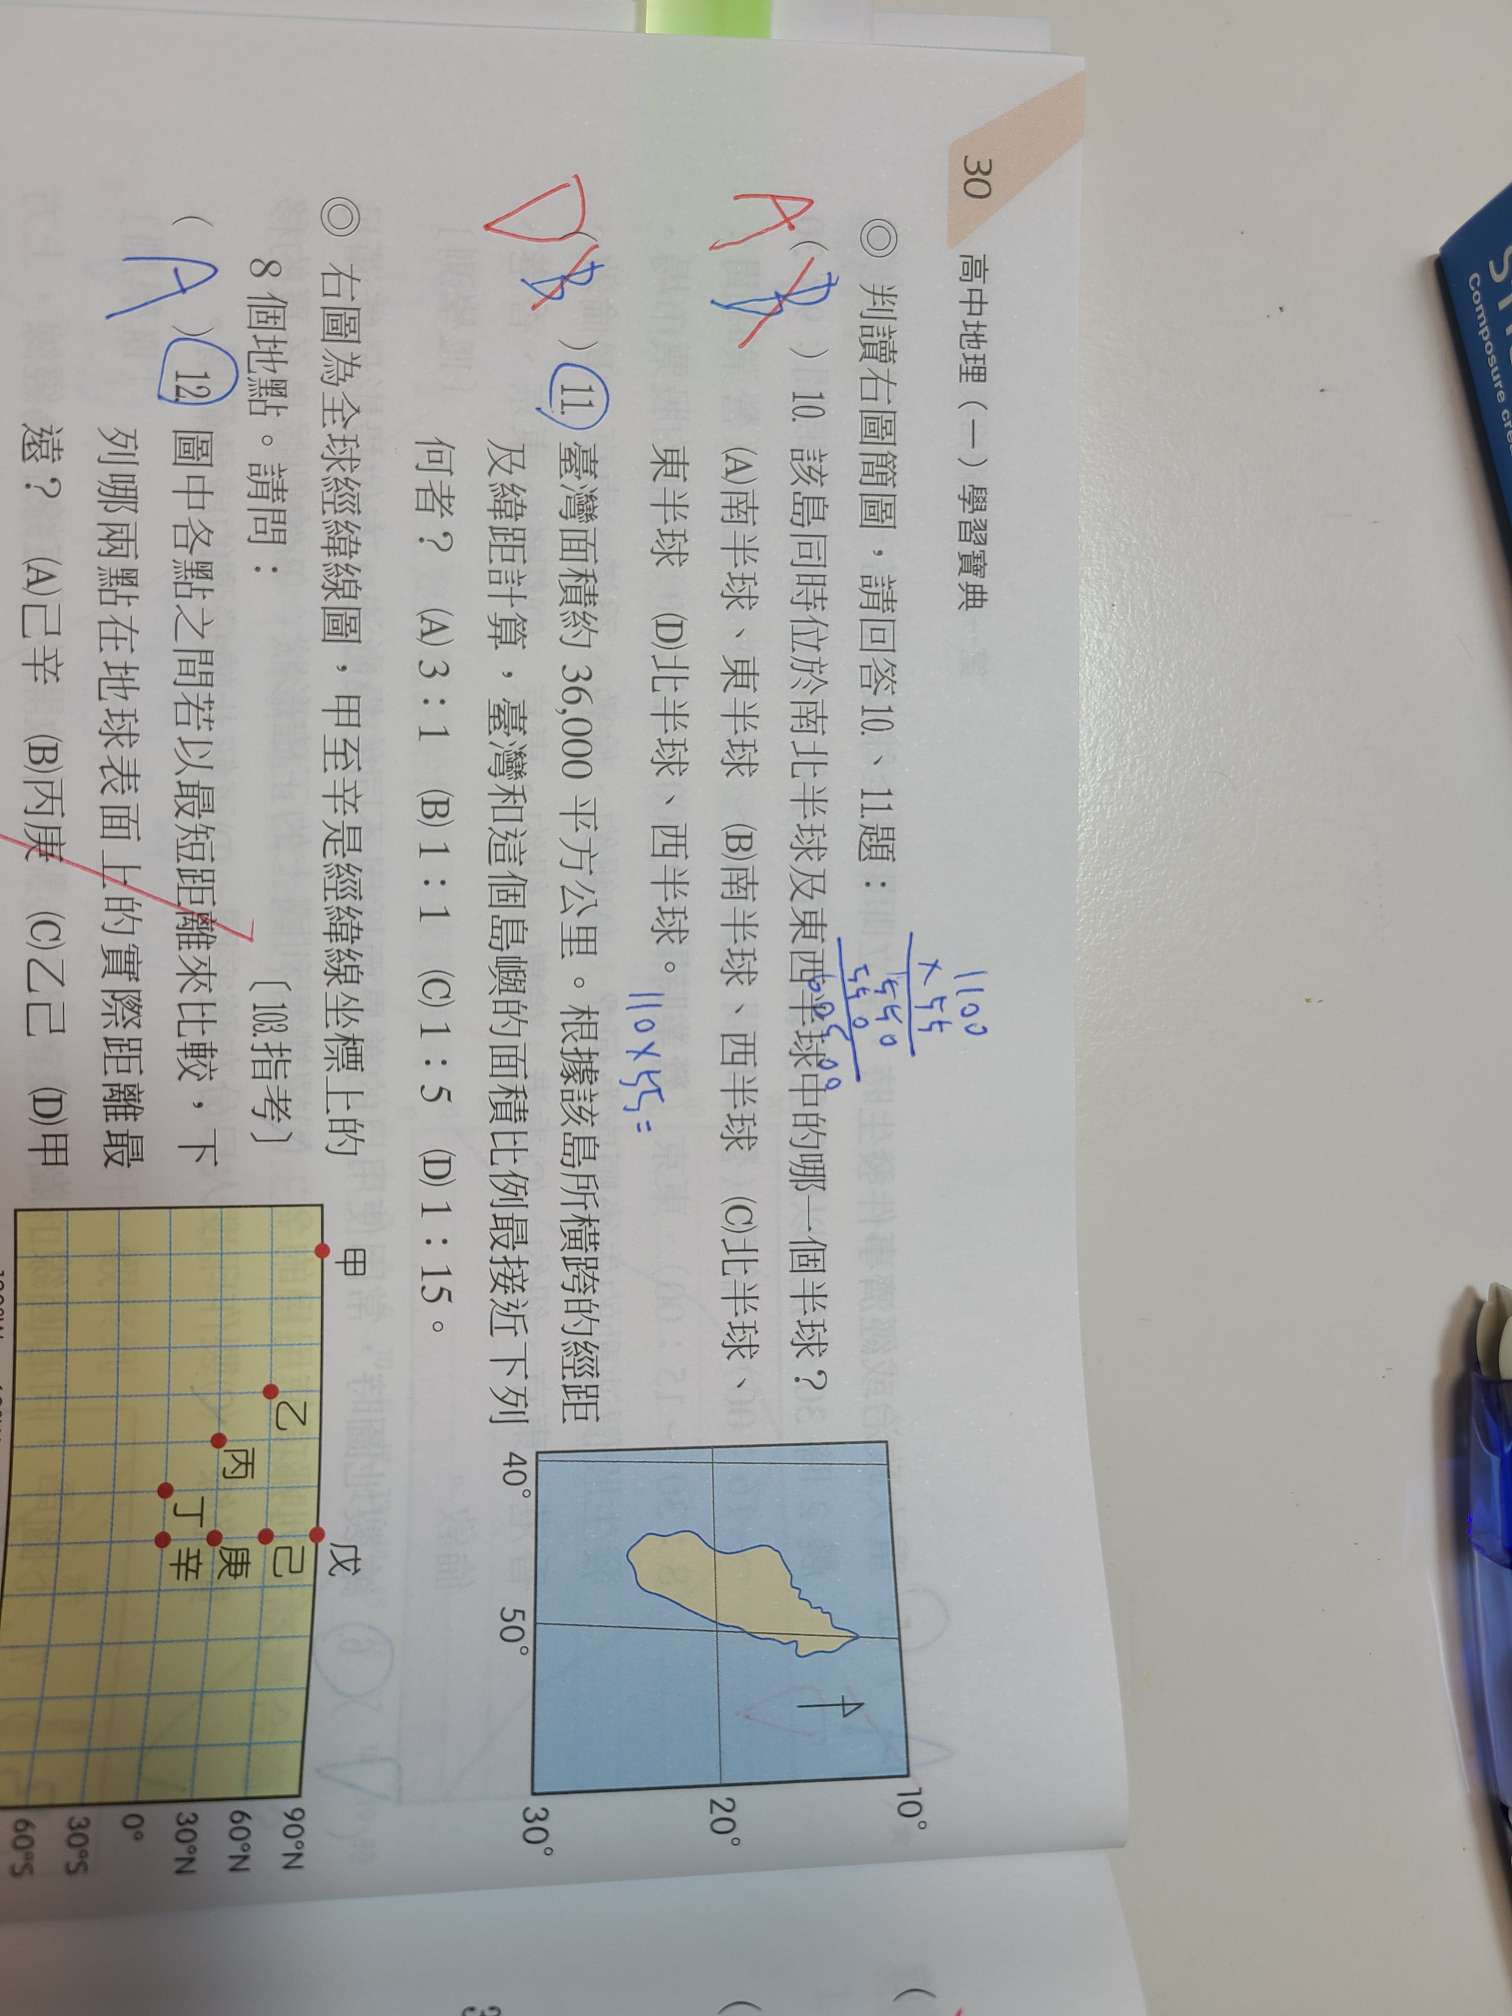 30 高中地理(一)學習寶典
◎ 判讀右圖簡圖,請回答10.、11.題:
A
( B ) 10. 該島同時位於南北半球及東西半球中的哪一個半球?
(A)南半球、東半球 (B)南半球、西半球 (C)北半球、
東半球 (D)北半球、西半球。
1100
× 55
550
550
110×55=
D
( B ) 11. 臺灣面積約 36,000 平方公里。根據該島所橫跨的經距
及緯距計算,臺灣和這個島嶼的面積比例最接近下列
何者? (A) 3:1 (B) 1:1 (C) 1:5 (D) 1:15。
10°
20°
30°
40° 50°
◎ 右圖為全球經緯線圖,甲至辛是經緯線坐標上的
8 個地點。請問: 〔103.指考〕
( A ) 12. 圖中各點之間若以最短距離來比較,下
列哪兩點在地球表面上的實際距離最
遠? (A)己辛 (B)丙庚 (C)乙己 (D)甲
甲 戊
乙 己
丙 庚
丁 辛
90°N
60°N
30°N
0°
30°S
60°S
Composure